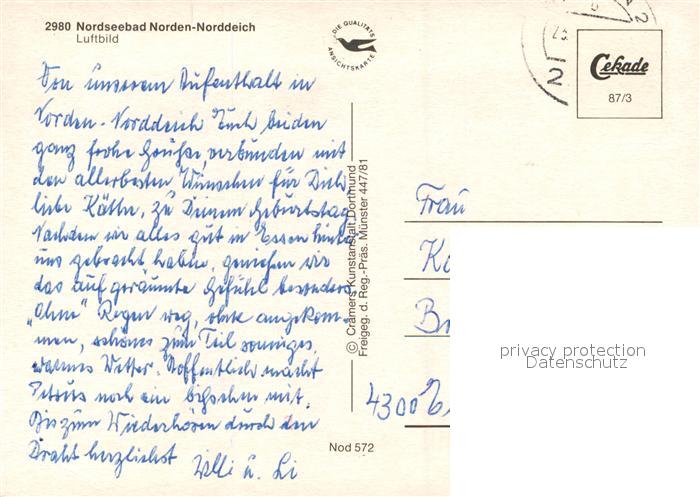 2980 Nordseebad Norden-Norddeich
Luftbild
DIE QUALITÄTS
ANSICHTSKARTE
Cekade
87/3
2
Von unserem Aufenthalt in
Norden-Norddeich Euch beiden
ganz frohe Grüße, verbunden mit
den allerbesten Wünschen für Dich
liebe Käthe, zu Deinem Geburtstag
Nachdem wir alles gut in Essen hinter
uns gebracht haben, genießen wir
das aufgeräumte Gefühl besonders
„Ohne" Regen weg, ohne angekom-
men, schönes zum Teil sonniges,
warmes Wetter. Hoffentlich macht
Petrus noch ein bißchen mit.
Bis zum Wiederhören durch den
Draht herzlichst Willi u. Li
© Cramers Kunstanstalt, Dortmund
Freigeg. d. Reg.-Präs. Münster 447/81
Nod 572
Frau
4300
privacy protection
Datenschutz